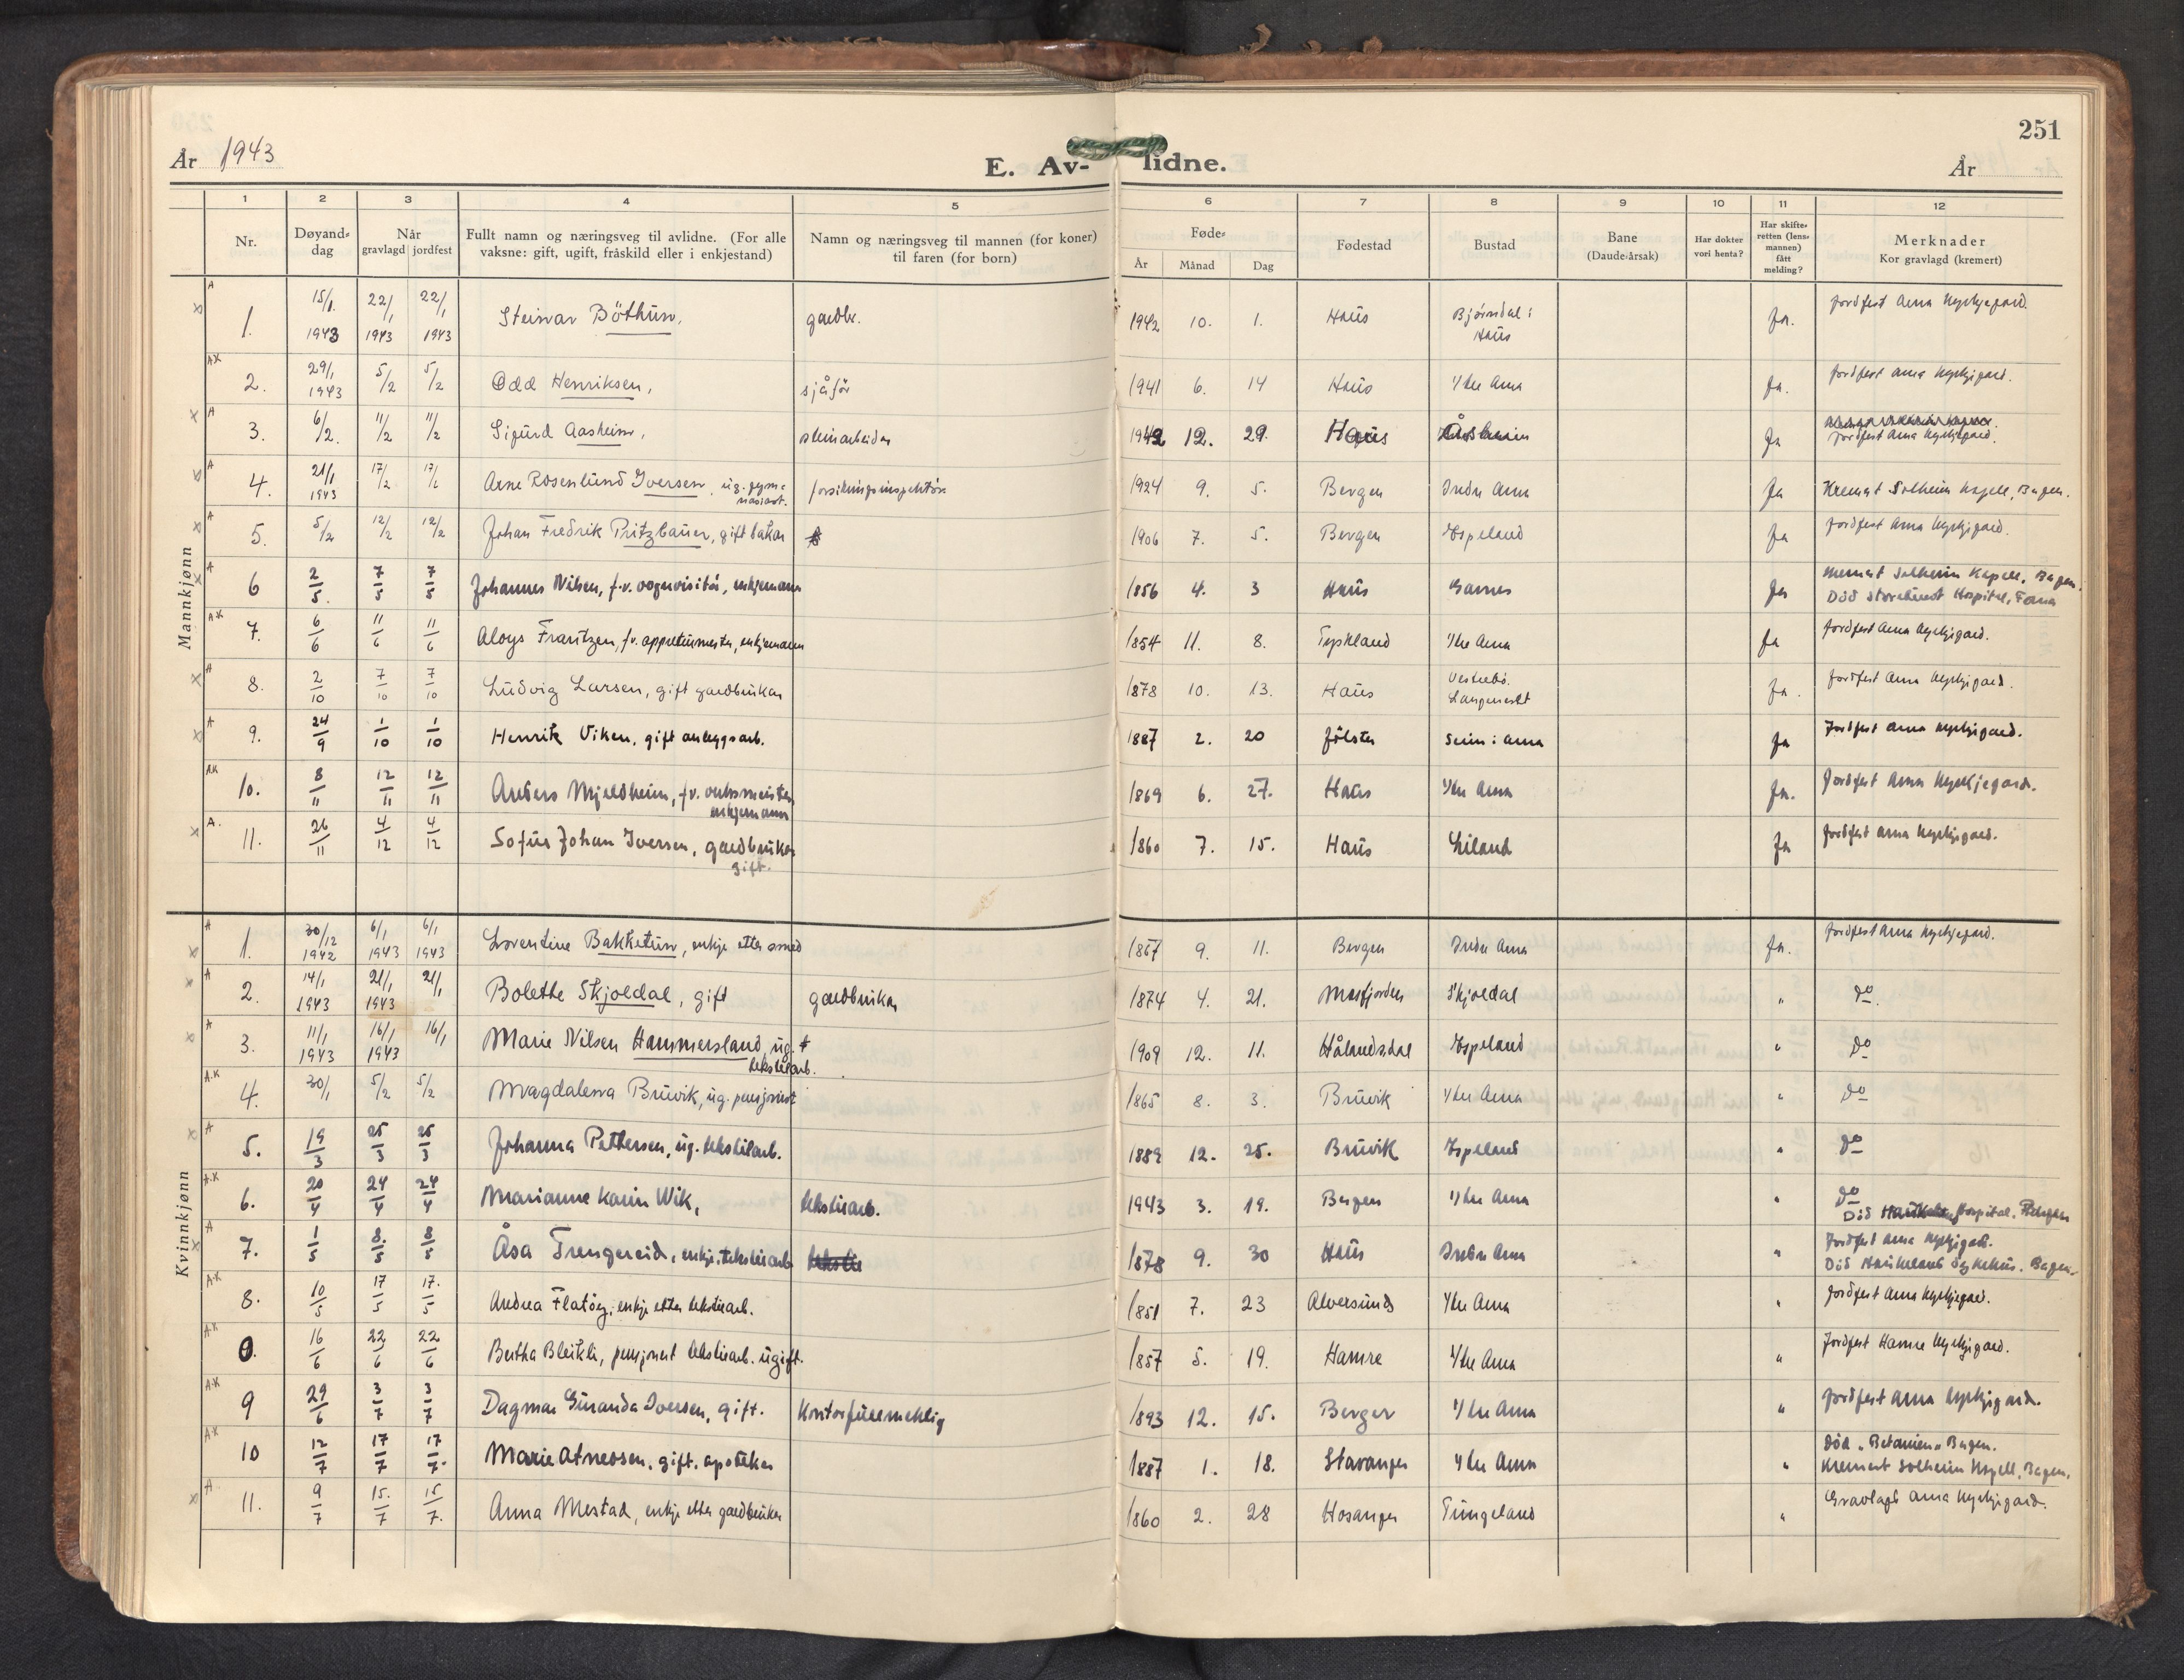 251
År 1943
E. Av- lidne.
År
1 2 3 4 5 6 7 8 9 10 11 12
Nr.
Døyand-
dag
Når
gravlagd jordfest
Fullt namn og næringsveg til avlidne. (For alle
vaksne: gift, ugift, fråskild eller i enkjestand)
Namn og næringsveg til mannen (for koner)
til faren (for born)
Føde-
År Månad Dag
Fødestad
Bustad
Bane
(Daude-årsak)
Har dokter
vori henta?
Har skifte-
retten (lens-
mannen)
fått
melding?
Merknader
Kor gravlagd (kremert)
Mannkjønn
A 1. 15/1 1943 22/1 1943 22/1 1943 Steinar Böthun, gardbr. 1942 10. 1. Haus Bjørndal i Haus Ja. Jordfest Arna kyrkjegard.
AK 2. 29/1 1943 5/2 5/2 Odd Henriksen, sjåfør 1941 6. 14 Haus Ytre Arna Ja. Jordfest Arna kyrkjegard.
A 3. 6/2. 11/2 11/2 Sigurd Aasheim, steinarbeider 1942 12. 29. Haus Åsheim Ja Jordfest Arna kyrkjegard.
A 4. 21/1 1943 17/2 17/2 Arne Rosenlund Iversen, ug. gymnasiast. forsikringsinspektør 1924 9. 5. Bergen Indre Arna Ja Kremert Solheim kapell, Bergen.
A 5. 5/2 12/2 12/2 Johan Fredrik Pritzbauer, gift bakar 1906 7. 5. Bergen Espeland Ja Jordfest Arna kyrkjegard.
A 6 2/5. 7/5 7/5 Johannes Nilsen, f.v. vognvisitør, enkjemann 1856 4. 3 Haus Garnes Ja Kremert Solheim Kapell, Bergen.
Død Storetveit Hospital, Fana
AK 7. 6/6 11/6 11/6 Aloys Frantzen, fv. appreturmester, enkjemann 1854 11. 8. Tyskland Ytre Arna Ja Jordfest Arna kyrkjegard.
A 8. 2/10 7/10 7/10 Ludvig Larsen, gift gardbrukar 1878 10. 13. Haus Vestrebö. Langeneset Ja. Jordfest Arna kyrkjegard.
A 9. 24/9 1/10 1/10 Henrik Viken, gift anleggsarb. 1887 2. 20 Jölster Seim i Arna Ja Jordfest Arna kyrkjegard.
AK 10. 8/11 12/11 12/11 Anders Mjeldheim, fv. verksmeister, enkjemann 1869 6. 27. Haus Ytre Arna Ja. Jordfest Arna kyrkjegard.
A. 11. 26/11 4/12 4/12 Sofus Johan Iversen, gardbrukar gift. 1860 7. 15. Haus Liland Ja Jordfest Arna kyrkjegard.
Kvinnkjønn
A 1. 30/12 1942 6/1 1943 6/1 1943 Lorentine Bakketun, enkje etter smed 1867 9. 11. Bergen Indre Arna Ja. Jordfest Arna kyrkjegard.
A 2. 14/1 1943 21/1 1943 21/1 Bolette Skjoldal, gift gardbrukar 1874 4. 21. Masfjorden Skjoldal " do.
A 3. 11/1 1943 16/1 1943 16/1 Marie Nilsen Hammersland, ug. tekstilarb. 1909 12. 11. Hålandsdal Espeland " do
A.K 4. 30/1 5/2 5/2 Magdalena Bruvik, ug. pensjonist 1865 8. 3. Bruvik Ytre Arna " do
A 5. 19/3 25/3 25/3 Johanna Pettersen, ug. tekstilarb. 1889 12. 25. Bruvik Espeland " do
A.K 6. 20/4 24/4 24/4 Marianne Karin Wik, tekstilarb. 1943 3. 19. Bergen Ytre Arna " do
Død Haukeland Hospital, Bergen
A 7. 1/5 8/5 8/5 Åsa Trengereid, enkje, tekstilarb. tekstil 1878 9. 30 Haus Indre Arna " Jordfest Arna kyrkjegard.
Død Haukeland Sykehus. Bergen.
A.K 8. 10/5 17/5 17/5 Andrea Flatöy, enkje etter tekstilarb. 1851 7. 23 Alversund Ytre Arna " Jordfest Arna kyrkjegard.
A.K 9. 16/6 22/6 22/6 Bertha Bleikli, pensjonert tekstilarb. ugift. 1857 5. 19. Hamre Ytre Arna " Jordfest Hamre kyrkjegard.
A.K 9 29/6 3/7 3/7 Dagmar Guranda Iversen, gift. Kontorfullmektig 1893 12. 15. Bergen Ytre Arna " Jordfest Arna kyrkjegard.
A.K 10 12/7 17/7 17/7. Marie Atnessen, gift, apoteker 1887 1. 18. Stavanger Ytre Arna " død "Betanien" Bergen.
Kremert Solheim kapell, Bergen.
A 11. 9/7 15/7 15/7. Anna Mestad, enkje etter gardbruker 1860 2. 28 Hosanger Tungeland " Gravlagt Arna kyrkjegard.